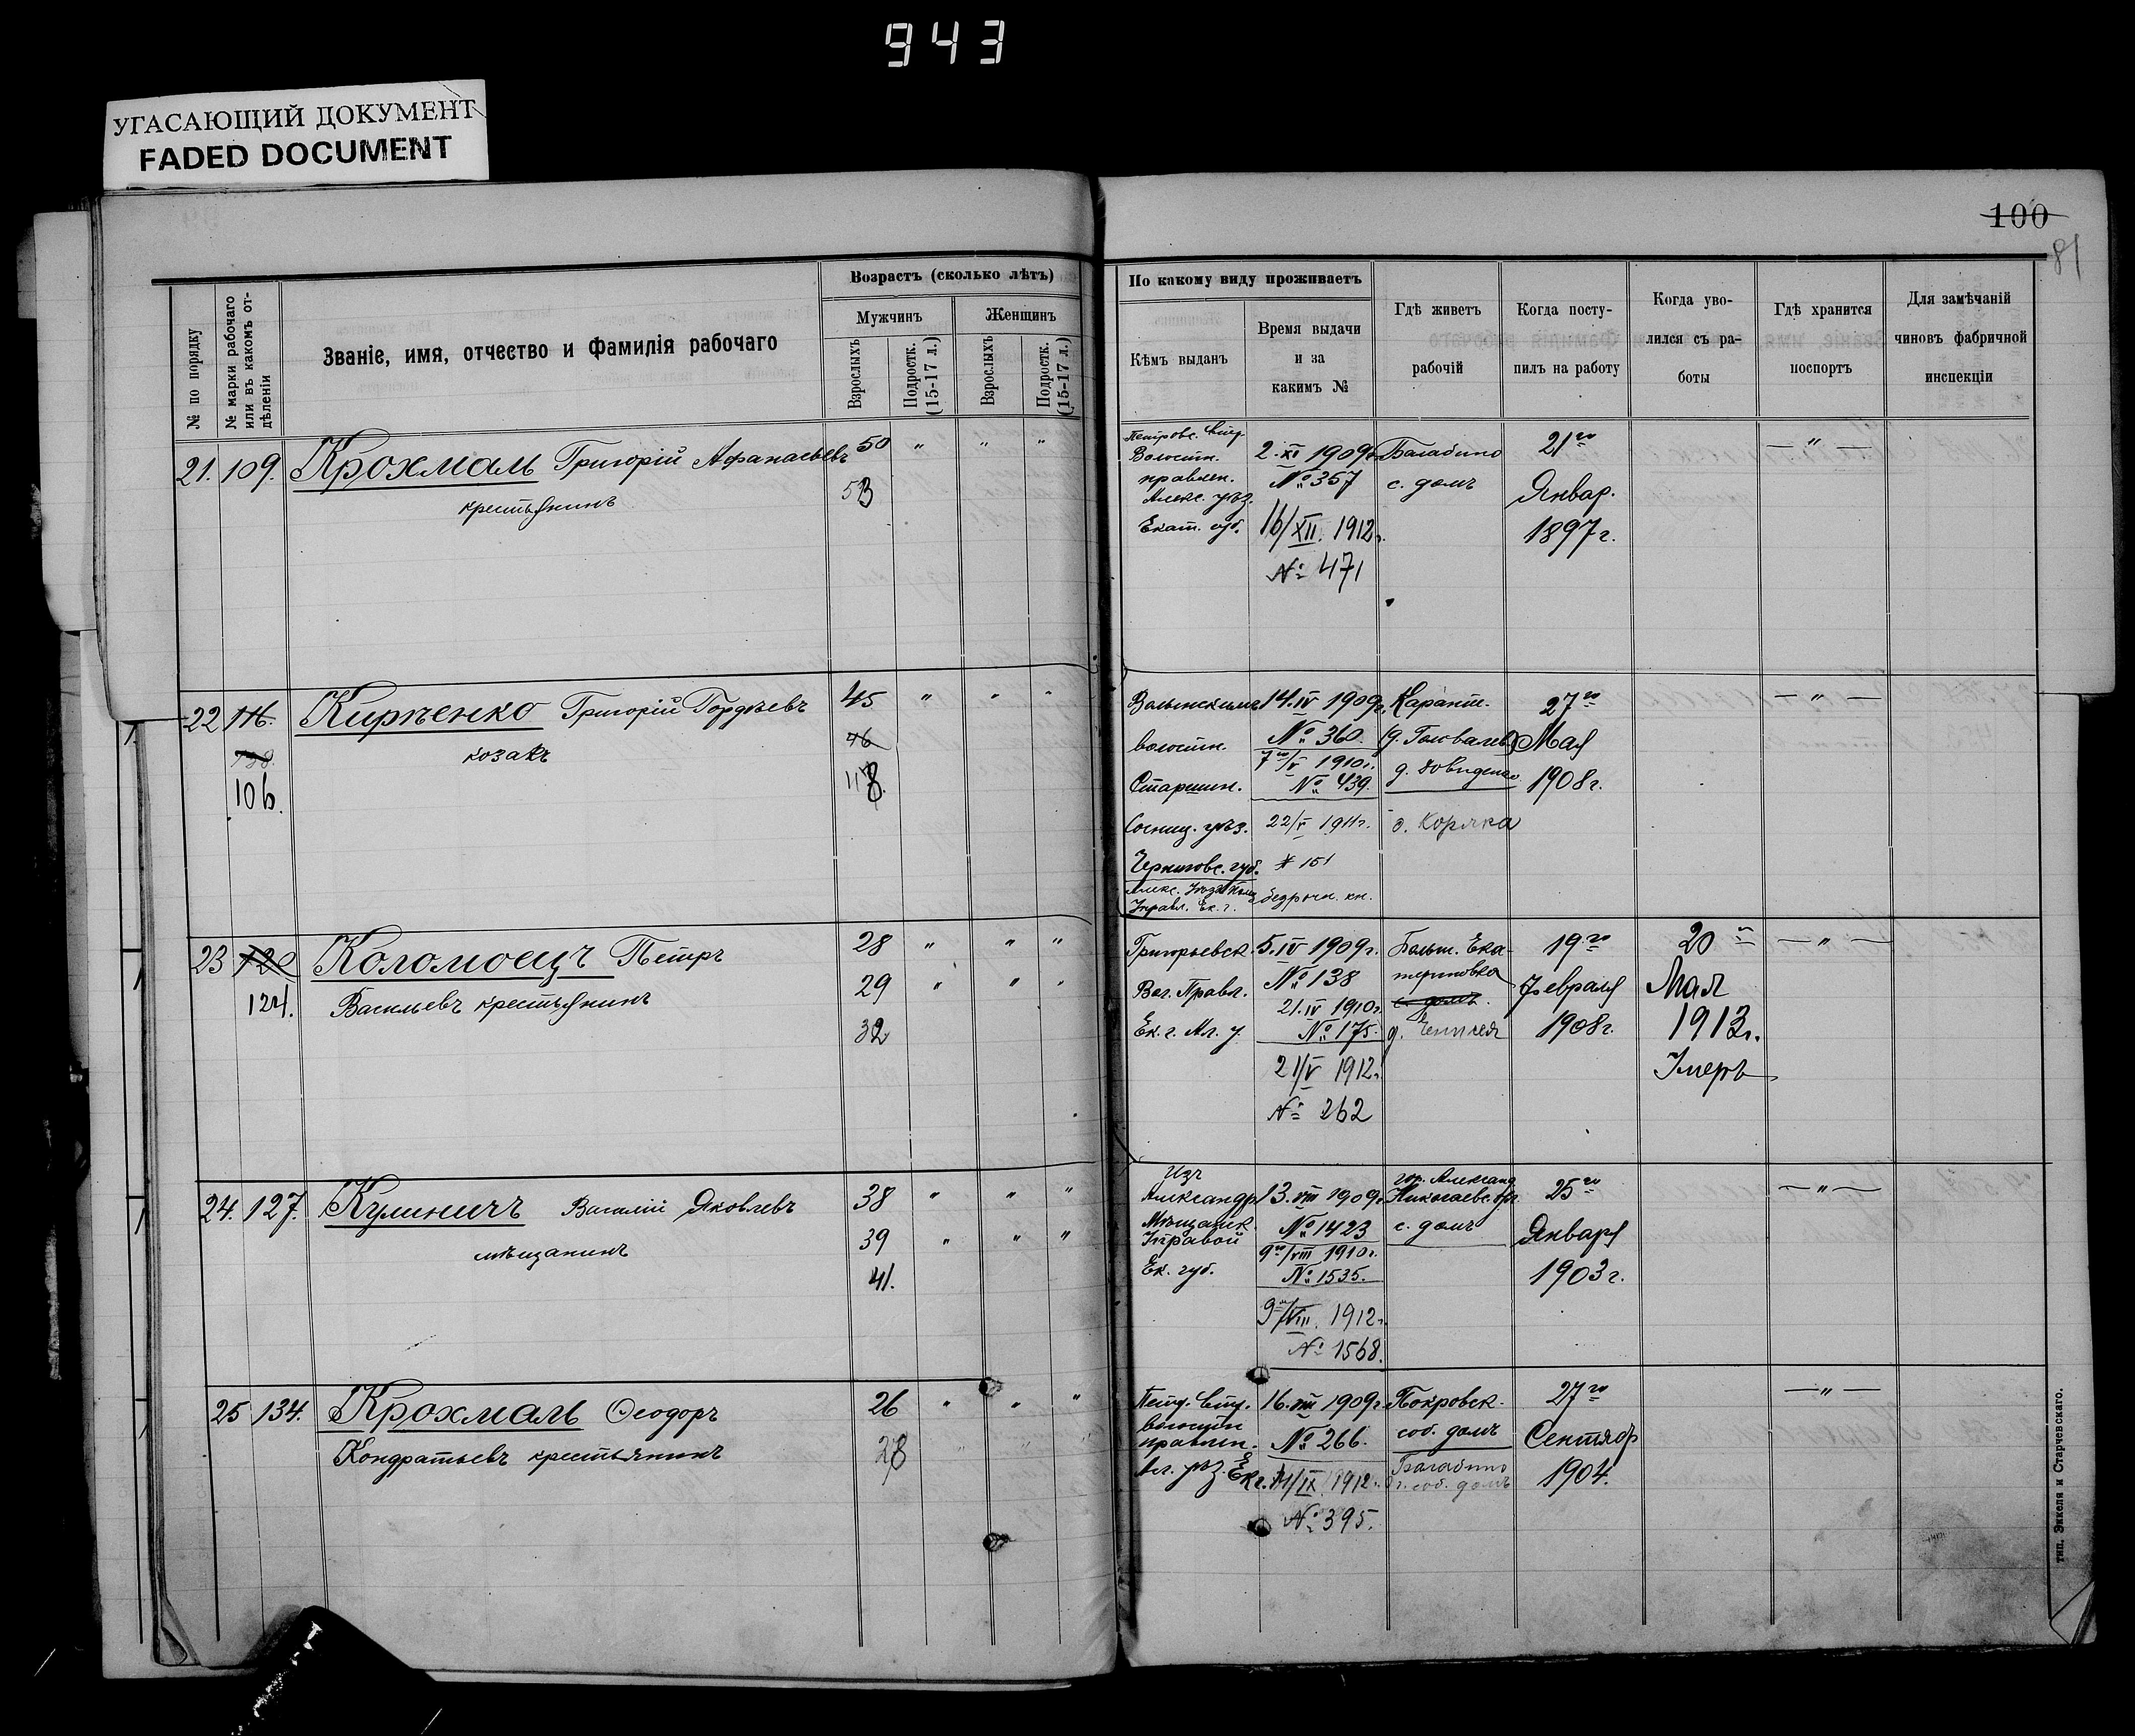 943
УГАСАЮЩИЙ ДОКУМЕНТ
FADED DOCUMENT
100
81
№ по порядку
№ марки рабочаго
или въ какомъ от-
дѣленіи
Званіе, имя, отчество и фамилія рабочаго
Возрастъ (сколько лѣтъ)
Мужчинъ
Женщинъ
Взрослыхъ
Подростк.
(15-17 л.)
Взрослыхъ
Подростк.
(15-17 л.)
По какому виду проживаетъ
Кѣмъ выданъ
Время выдачи
и за
какимъ №
Гдѣ живетъ
рабочій
Когда посту-
пилъ на работу
Когда уво-
лился съ ра-
боты
Гдѣ хранится
поспортъ
Для замѣчаній
чиновъ фабричной
инспекціи
21. 109. Крохмаль Григорій Афанасьевъ 50 " " "
крестьянинъ
53
Волостн.
правлен.
Алекс. уѣз.
Екат. губ.
2.XI 1909г.
№ 357
16/XII. 1912г.
№ 471
Балабино
с. домъ
21го
Январ.
1897г.
— " —
22 116. Кирпченко Григорій Гордѣевъ 45 " " "
козакъ
46
106.
Волынскимъ
волостн.
Старшин.
Сосниц. уѣз.
Черниговс. губ.
14.IV 1909г.
№ 360.
7го/V 1910г.
№ 439.
22/V 1911г.
№ 151
Карант.
д. Коряка
27го
Мая
1908г.
— " —
23 120 Коломоецъ Петръ 28 " " "
124. Васильевъ крестьянинъ 29 " " "
32
Григорьевск.
Вол. Правл.
Ек. г. Ал. у.
5.IV 1909г.
№ 138
21.IV 1910г.
№ 175.
21/V 1912г.
№ 262
Больш. Ека-
териновка
с. домъ.
19го
Февраля
1908г.
20го
Мая
1913г.
Умеръ
— " —
24. 127. Кулиничъ Василій Яковлевъ 38 " " "
мѣщанинъ 39 " " "
41.
Изъ
Александр.
Мѣщанск.
Управой
Ек. губ.
13.VIII 1909г.
№ 1423
9го/VIII 1910г.
№ 1535.
9го/VIII. 1912г.
№ 1568.
гор. Александ
с. домъ
25го
Января
1903г.
— " —
25 134. Крохмаль Ѳеодоръ 26 " " "
Кондратьевъ крестьянинъ 28
волостн
правлен.
Ал. уѣз. Ек г.
16.VIII 1909г.
№ 266.
11/IX. 1912г.
№ 395.
Покровск.
соб. домъ
Балабино
соб. домъ
27го
Сентяр
1904.
— " —
тип. Эккеля и Старчевскаго.